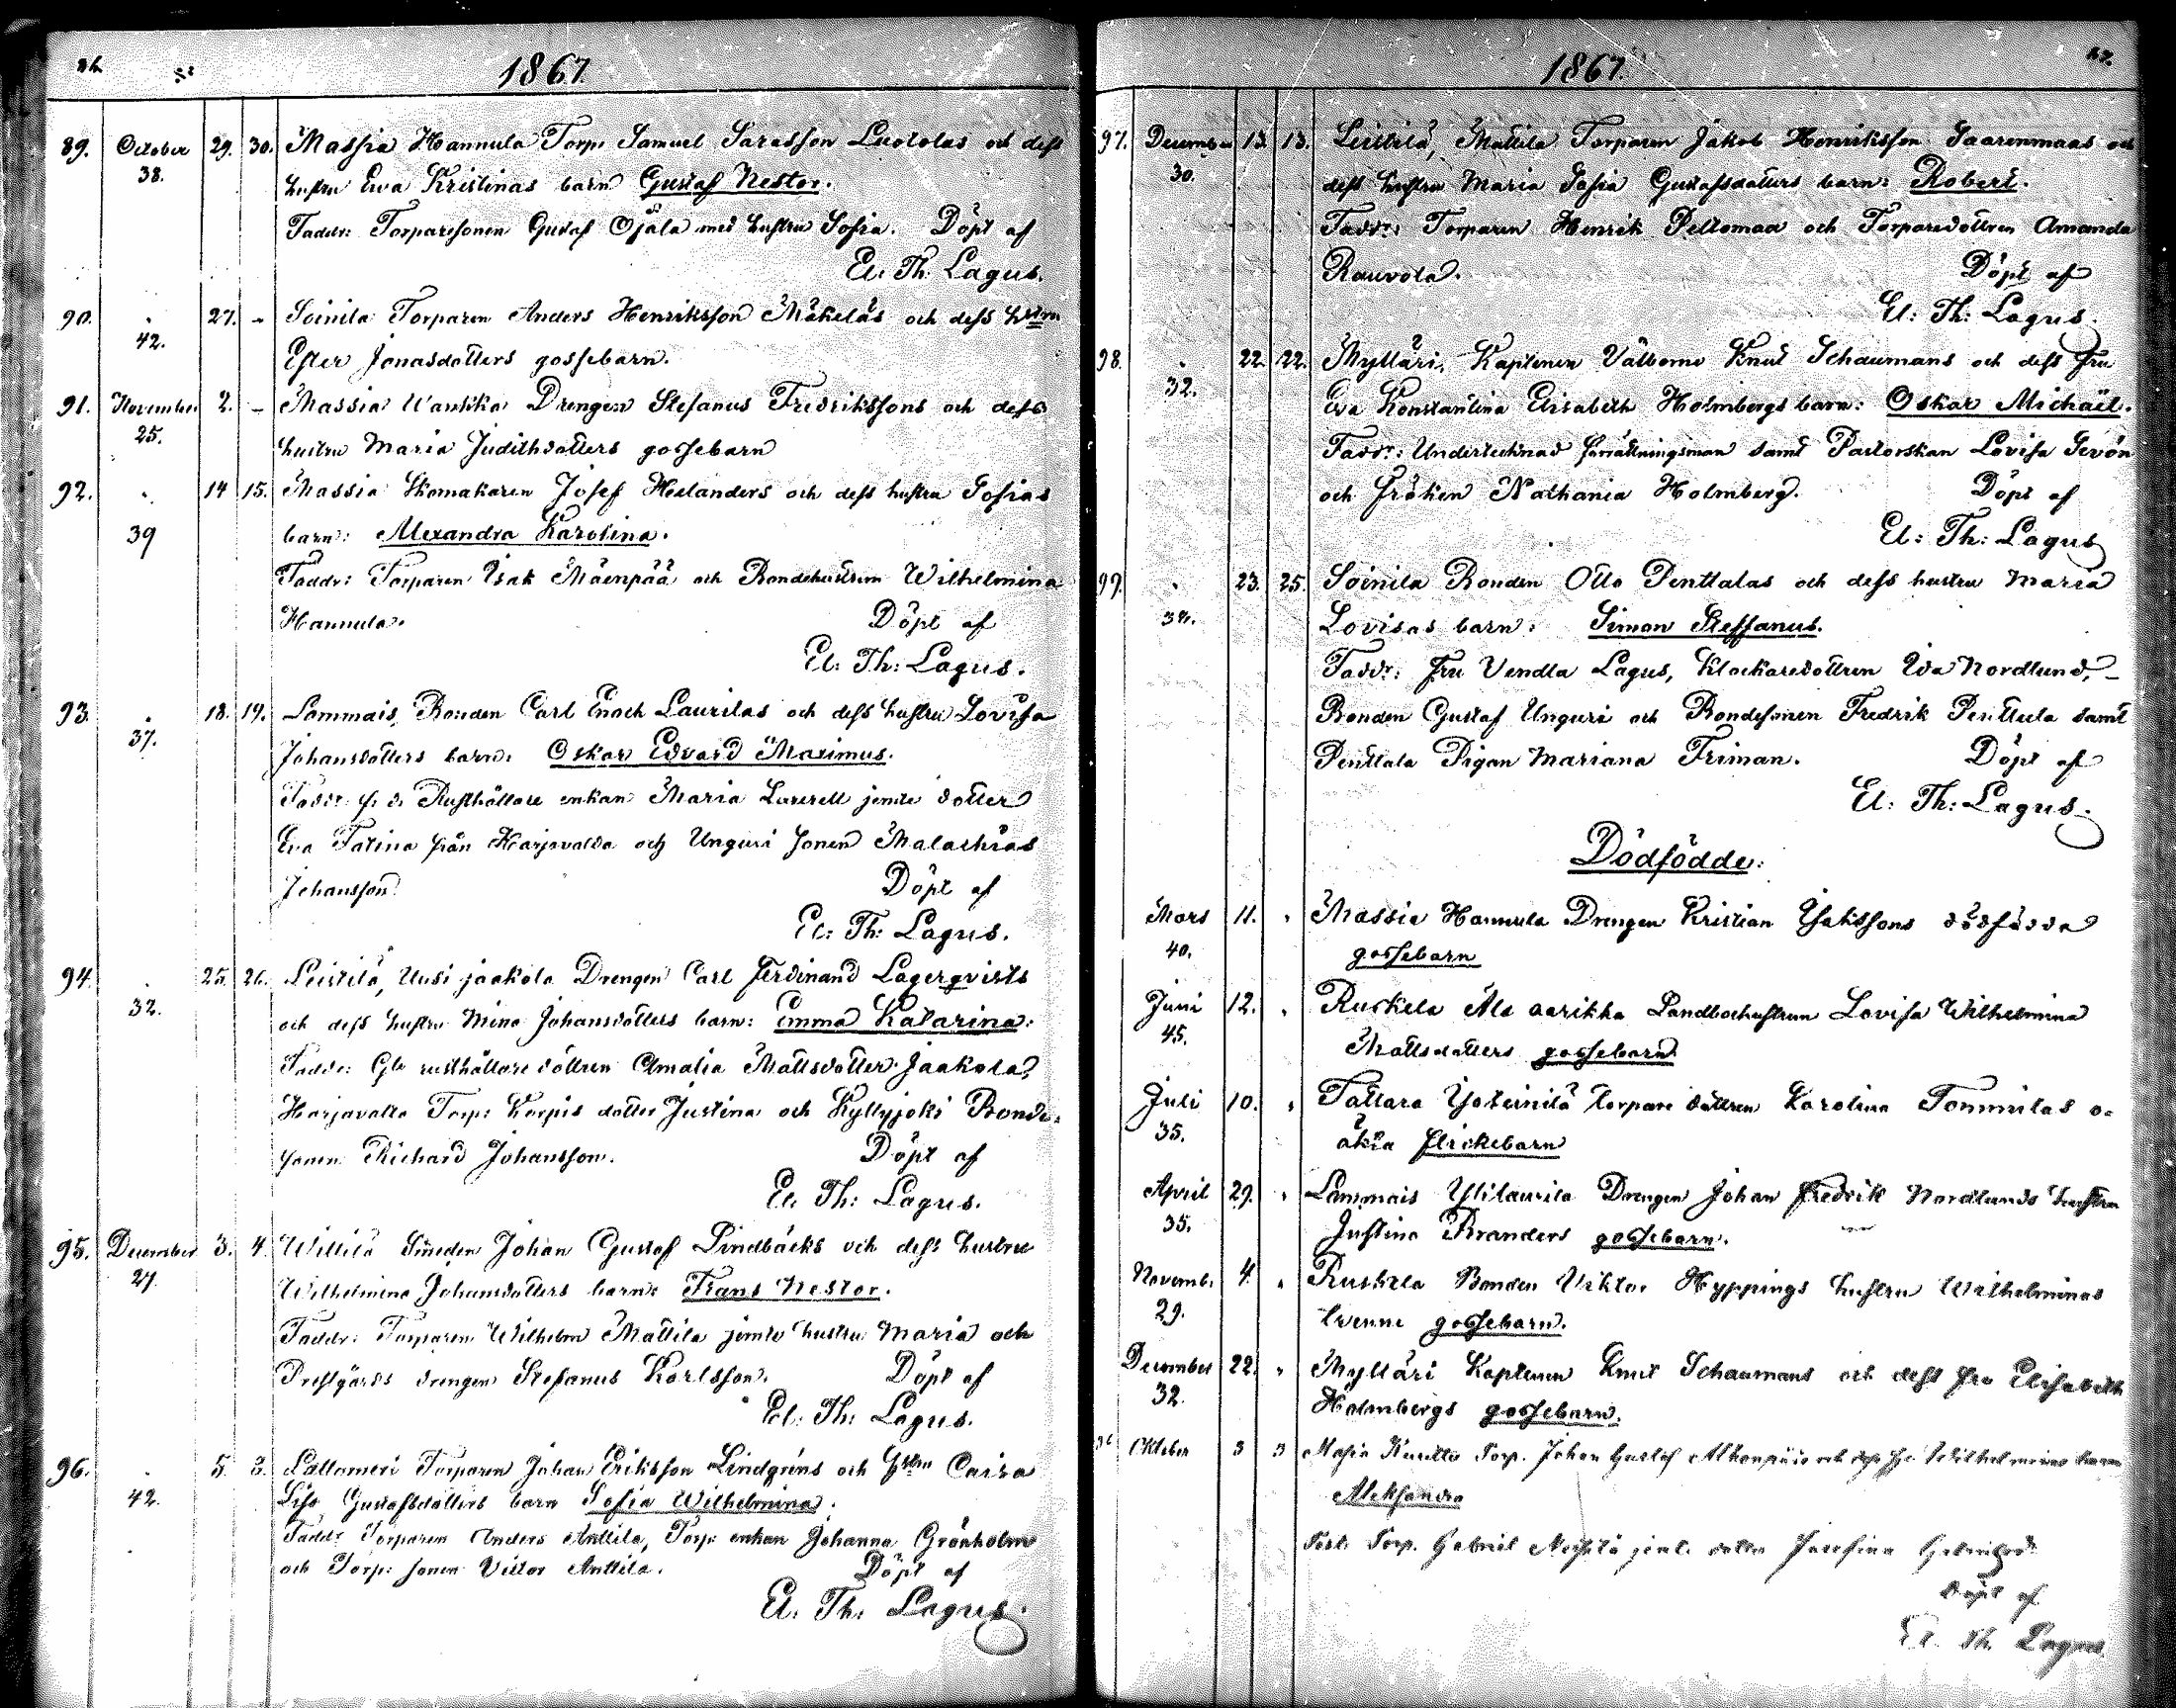 1867.
89. October 29. 30. Massia Hannula Torp. Samuel Sarasson Luotolas och dess
38. hustru Eva Kristinas barn Gustaf Nestor.
Faddr: Torparesonen Gustaf Ojala med hustru Sofia. Döpt af
El: Th: Lagus.
90. 27. - Soinila Torparen Anders Henriksson Mäkeläs och dess
42. Ester Jonasdotters gossebarn.
91. November 2. - Massia Drengen Stefanus Fredrikssons och dess
25. hustru Maria Judithsdotters gossebarn
92. 14 15. Massia Skomakaren Josef Heslanders och dess hustru Sofias
39 barn: Alexandra Karolina.
Faddr: Torparen Isak Mäenpää och Bondehustrun Wilhelmina
Hannula. Döpt af
El: Th: Lagus.
93. 18. 19. Lammais, Bonden Carl Enoch Laurilas och dess hustru Lovisa
37. Johansdotters barn: Oskar Edvard Maximus.
Faddr: f. d. Rusthållare enkan Maria jemte dotter
Eva Fatina från Harjavalda och Unguri sonen Malachias
Johansson. Döpt af
El: Th: Lagus.
94. 25. 26. Leistilä, Uusi jaakola Drengen Carl Ferdinand Lagerqvists
32. och dess hustru Mina Johansdotters barn: Emma Katarina:
Faddr: rusthållare dottren Amalia Mattsdotter Jaakola,
Harjavalta Torp: Korpis dotter Justina och Kyllyjoki Bonde-
sonen Richard Johansson. Döpt af
El: Th: Lagus.
95. December 3. 4. Willilä Smeden Johan Gustaf Lindbäcks och dess hustru
27. Wilhelmina Johansdotters barn: Frans Nestor.
Faddr: Torparen Wilhelm Mattila jemte hustru Maria och
Prestgårds drengen Stefanus Karlsson. Döpt af
El: Th: Lagus.
96. 5. 3. Lattomeri Torparen Johan Eriksson Lindgrens och Caisa
42. Lisa Gustafsdotters barn Sofia Wilhelmina.
Faddr: Torparen Anders Anttila, Torp: enkan Johanna Grönholm
och Torp: sonen Victor Anttila. Döpt af
El: Th: Lagus.
1867.
97. December 13. 13. Leistilä, Mattila Torparen Jakob Henriksson Saarenmaas och
30. dess hustru Maria Sofia Gustafsdotters barn: Robert.
Faddr: Torparen Henrik Peltomaa och Torparedottren Amanda
Rauvola. Döpt af
El: Th: Lagus.
98. 22. 22. Myltäri, Kaptenen Välborne Knut Schaumans och dess Fru
32. Eva Konstantina Elisabeth Holmbergs barn: Oskar Michaël.
Faddr: Undertecknad Förrättningsman samt Pastorskan Lovisa Sevón
och Fröken Nathania Holmberg. Döpt af
El: Th: Lagus
99. 23. 25. Soinila Bonden Otto Penttalas och dess hustru Maria
Lovisas barn: Simon Steffanus.
Faddr: Fru Vendla Lagus, Klockaredottren Ida Nordlund, -
Bonden Gustaf Unguri och Bondesonen Fredrik Penttala samt
Penttala Pigan Mariana Friman. Döpt af
El: Th: Lagus.
Dödfödde:
Mars 11. Massia Hannula Drengen Kristian Isakssons dödfödda
40. gossebarn
Juni 12. Ruskela Ala aarikka Landbohustrun Lovisa Wilhelmina
45. Mattsdotters gossebarn
Juli 10. Tattara torpare dottren Karolina Tommilas o-
35. äkta flickebarn
April 29. Lammais Ylilaurila Drengen Johan Fredrik Nordlunds hustru
35. Justina Branders gossebarn.
Novemb. 4. Ruskela Bonden Viktor Hyppings hustru Wilhelminas
29. tvenne gossebarn.
December 22. Myltäri Kaptenen Knut Schaumans och dess fru Elisabeth
32. Holmbergs gossebarn.
Oktober 3 3 Torp. Johan Gustaf och Wilhelminas barn
Aleksandra
Torp. Gabriel dotter Josefina
Döpt af
El. Th. Lagus